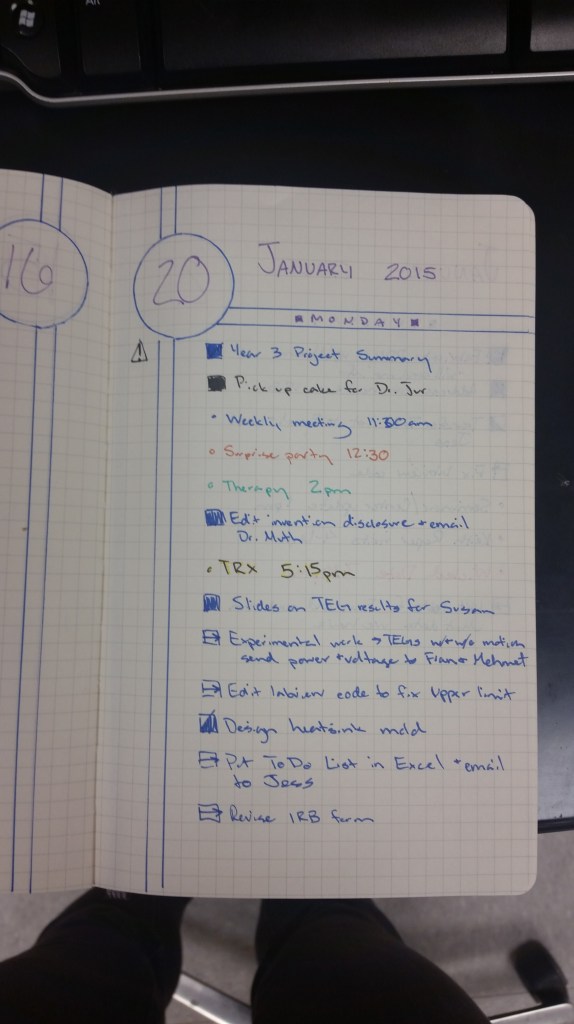 Alt
16
20
JANUARY 2015
MONDAY
Year 3 Project Summary
Pick up cake for Dr. Jur
Weekly meeting 11:30am
Surprise party 12:30
Therapy 2pm
Edit invention disclosure + email
Dr. Muth
TRX 5:15pm
Slides on TEG results for Susan
Experimental work → TEGs w+w/o motion
send power + voltage to Fran + Mehmet
Edit labview code to fix Upper limit
Design heatsink mold
Put To Do List in Excel + email
to Jess
Revise IRB form